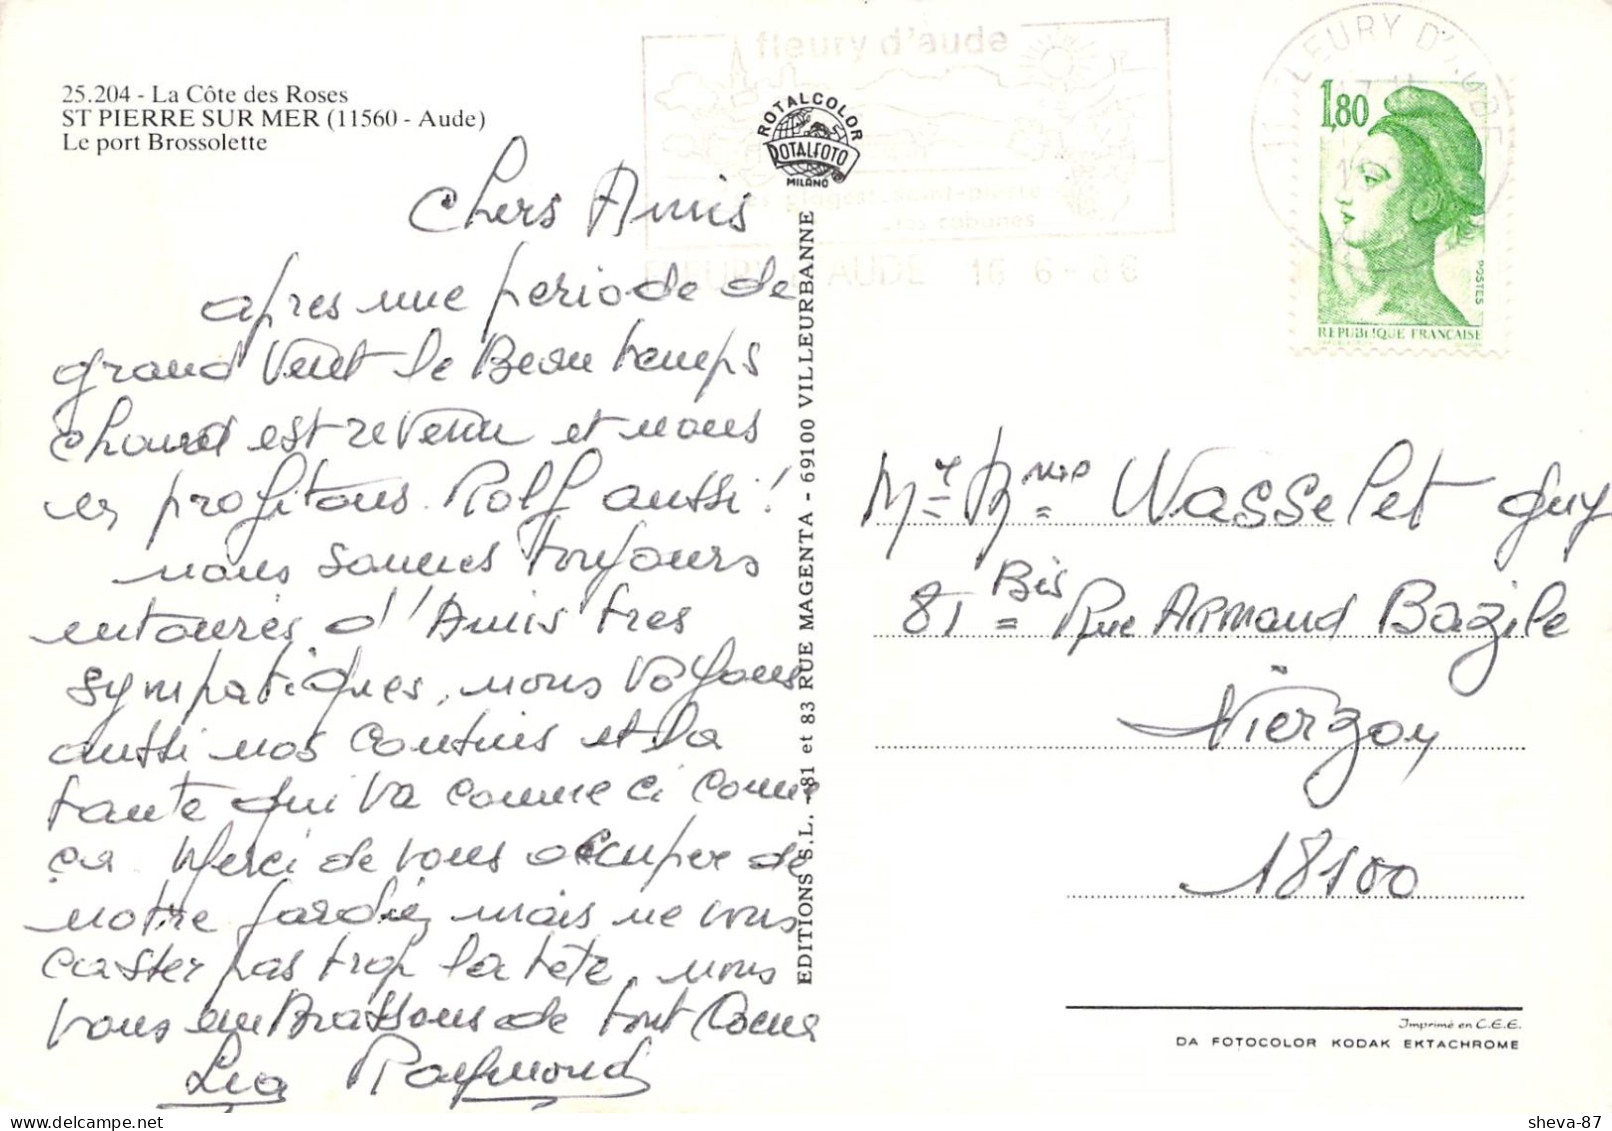 25.204 - La Côte des Roses
ST PIERRE SUR MER (11560 - Aude)
Le port Brossolette
Chers Amis
apres une periode de
grand Vent le Beau temps
chaud est revenu et nous
en profitons. Rolf aussi!
nous sommes toujours
entourés d'Amis tres
sympatiques, nous voyons
aussi nos cousins et la
tante qui va comme ci comme
ça. Merci de vous occuper de
notre jardin mais ne vous
casser pas trop la tête, nous
vous embrassons de tout Coeur
Léa Raymond
ROTALCOLOR
ROTALFOTO
MILANO
EDITIONS S.L. - 81 et 83 RUE MAGENTA - 69100 VILLEURBANNE
fleury d'aude
ses plages: saint-pierre
les cabanes
FLEURY D'AUDE 16 6-86
11 FLEURY D'AUDE
1,80
POSTES
REPUBLIQUE FRANÇAISE
Mr et Mme Wasselet Guy
81 Bis Rue ARMAND Bazile
Vierzon
18100
Imprimé en C.E.E.
DA FOTOCOLOR KODAK EKTACHROME
sheva-87